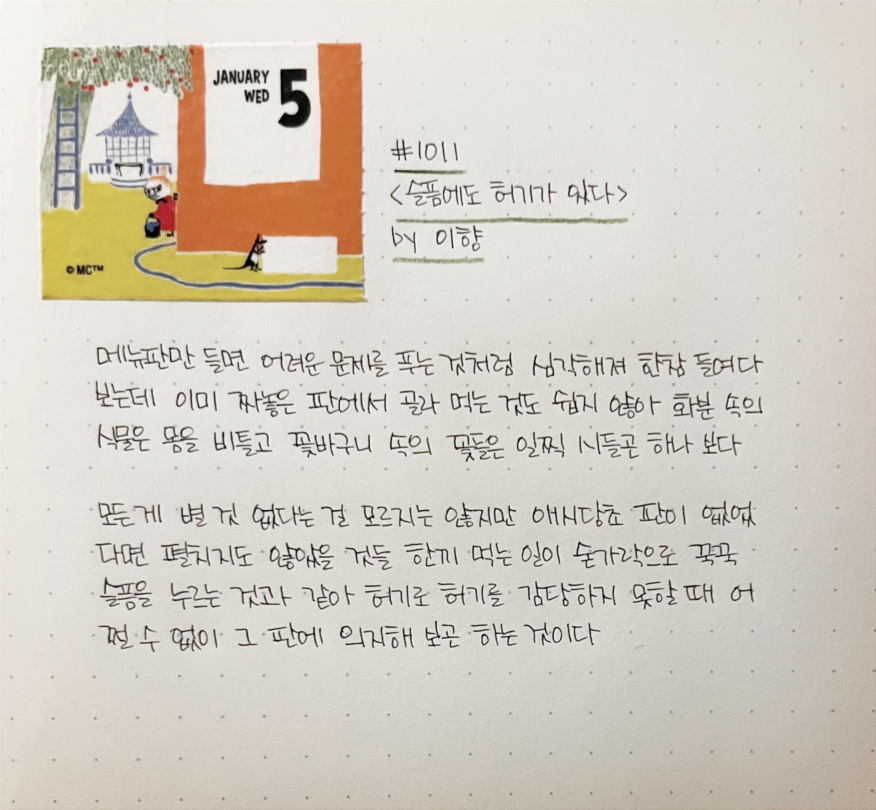 JANUARY
WED
5
© MC™
#1011
<슬픔에도 허기가 있다>
by 이향
메뉴판만 들면 어려운 문제를 푸는 것처럼 심각해져 한참 들여다
보는데 이미 짜놓은 판에서 골라 먹는 것도 쉽지 않아 화분 속의
식물은 몸을 비틀고 꽃바구니 속의 꽃들은 일찍 시들곤 하나 보다
모든게 별 것 없다는 걸 모르지는 않지만 애시당초 판이 없었
다면 펼치지도 않았을 것들 한끼 먹는 일이 숟가락으로 꾹꾹
슬픔을 누르는 것과 같아 허기로 허기를 감당하지 못할 때 어
쩔 수 없이 그 판에 의지해 보곤 하는 것이다